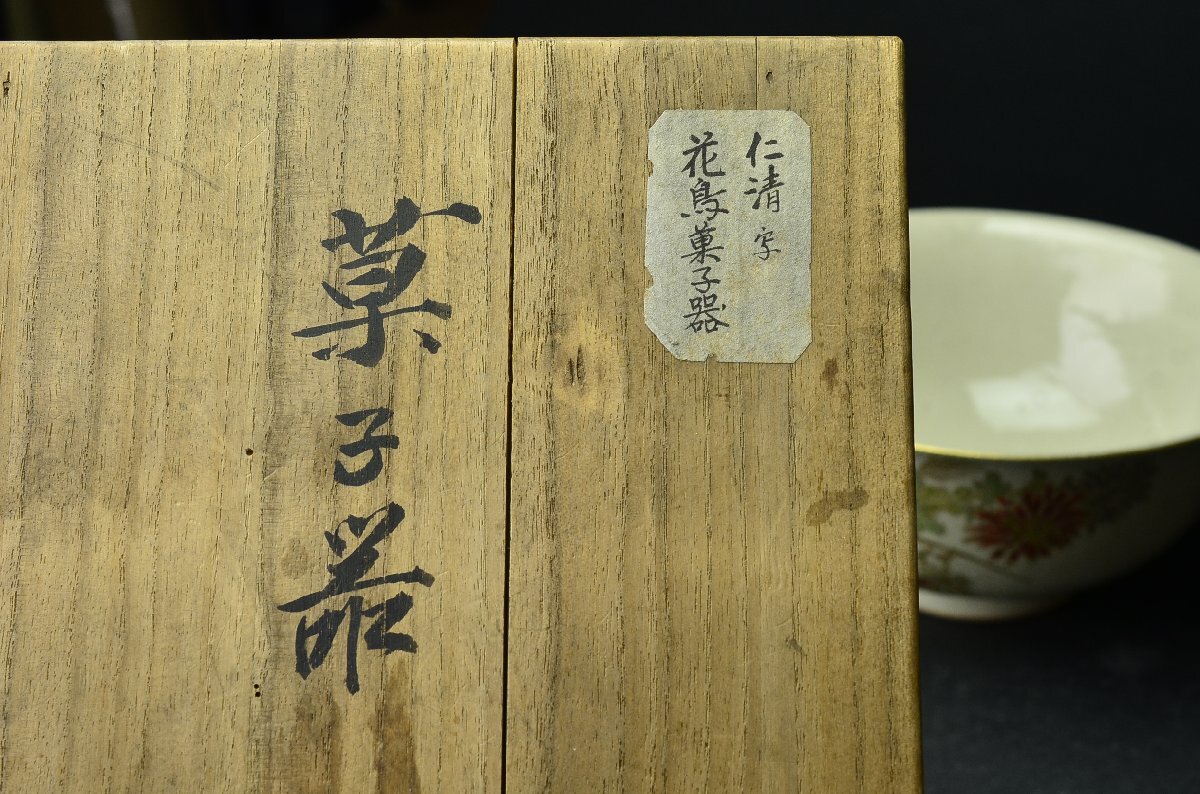 仁清写
花鳥菓子器
菓子器